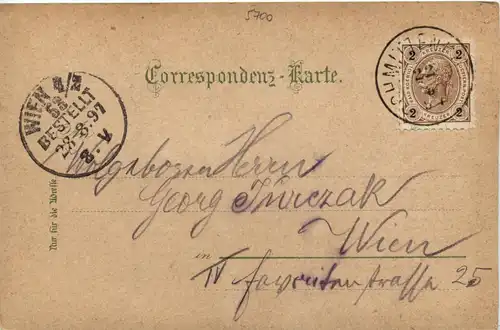 5700
Correspondenz-Karte.
2 KREUZER 2
2 2
WIEN 4/1
BESTELLT
23.8.97
8.V
Wolgeboren Herrn
Georg
Nur für die Adresse.
Wien
in
IV Favoritenstrasse 25